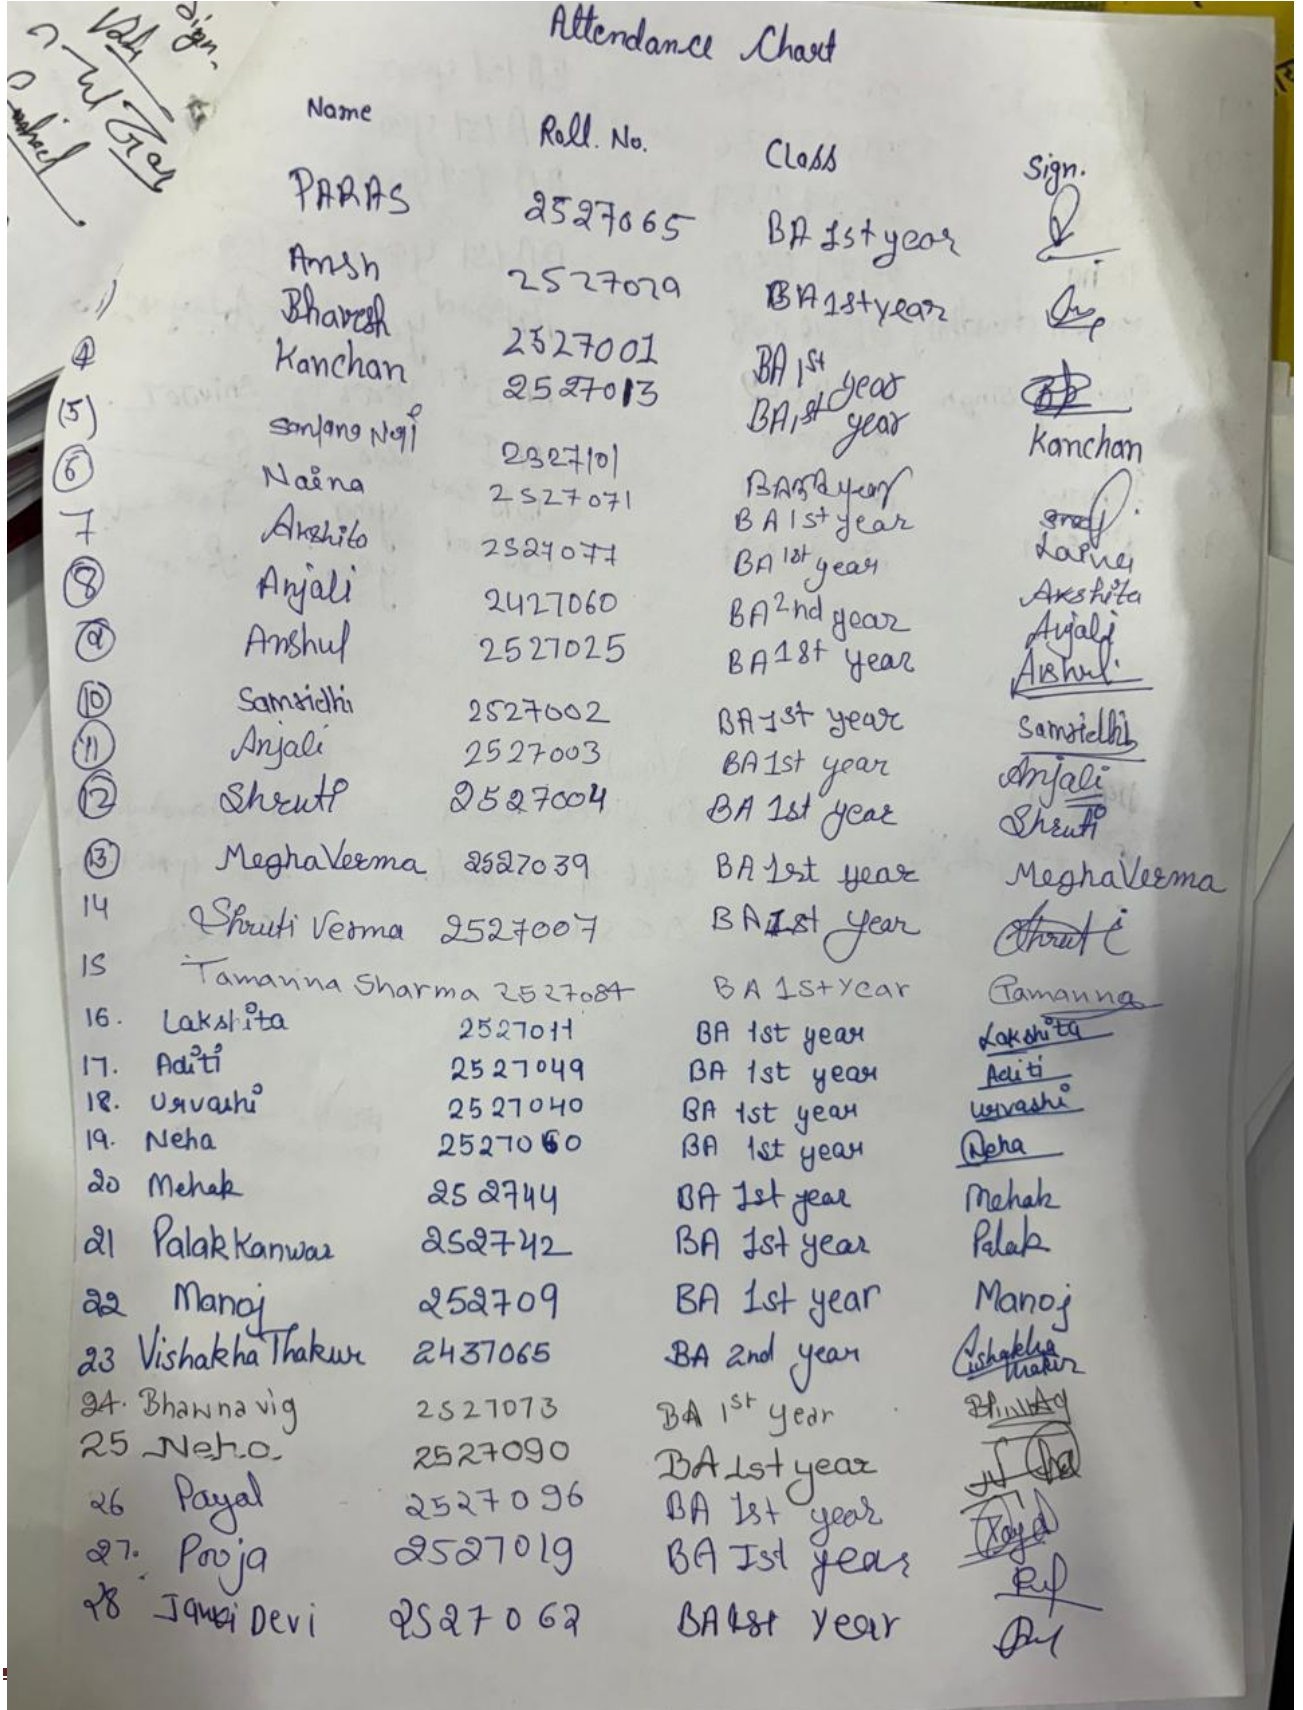 Sign.
Attendance Chart
Name Roll. No. Class Sign.
PARAS 2527065 BA 1st year
Ansh 2527029 BA 1st year
Bhavesh 2527001 BA 1st year
4 Kanchan 2527013 BA 1st year Kanchan
(5) Sanjana Negi 2327101 BA 3rd year
6 Naina 2527071 BA 1st year Naina
7 Akshita 2527077 BA 1st year Akshita
8 Anjali 2427060 BA 2nd year Anjali
9 Anshul 2527025 BA 1st year Anshul
10 Samridhi 2527002 BA 1st year Samridhi
11 Anjali 2527003 BA 1st year Anjali
12 Shruti 2527004 BA 1st year Shruti
13 Megha Verma 2527039 BA 1st year Megha Verma
14 Shruti Verma 2527007 BA 1st year Shruti
15 Tamanna Sharma 2527084 BA 1st year Tamanna
16. Lakshita 2527011 BA 1st year Lakshita
17. Aditi 2527049 BA 1st year Aditi
18. Urvashi 2527040 BA 1st year Urvashi
19. Neha 2527060 BA 1st year Neha
20 Mehak 252744 BA 1st year Mehak
21 Palak Kanwar 252742 BA 1st year Palak
22 Manoj 252709 BA 1st year Manoj
23 Vishakha Thakur 2437065 BA 2nd year Vishakha Thakur
24. Bhawna vig 2527073 BA 1st year
25 Neha 2527090 BA 1st year Neha
26 Payal 2527096 BA 1st year Payal
27. Pooja 2527019 BA Ist year
28 Devi 2527062 BA 1st year